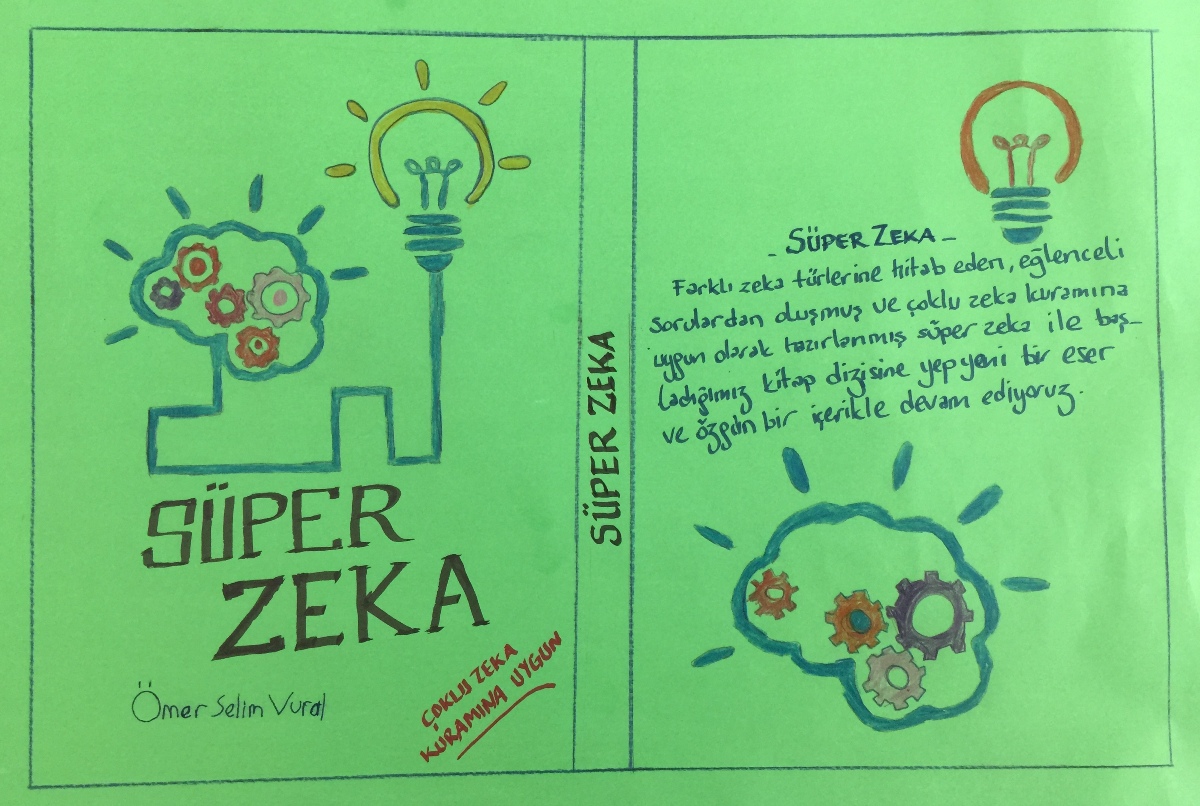 SÜPER
ZEKA
Ömer Selim Vural
ÇOKLU ZEKA
KURAMINA UYGUN
SÜPER ZEKA
- SÜPER ZEKA -
Farklı zeka türlerine hitab eden, eğlenceli
sorulardan oluşmuş ve çoklu zeka kuramına
uygun olarak hazırlanmış süper zeka ile baş-
ladığımız kitap dizisine yepyeni bir eser
ve özgün bir içerikle devam ediyoruz.